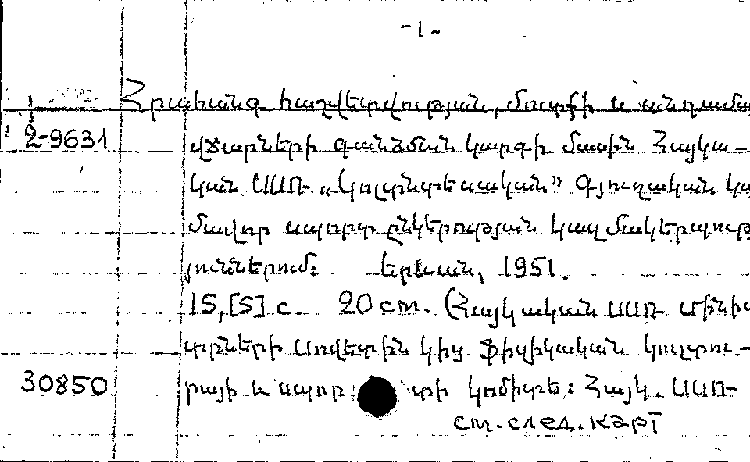 -1-
Հրահանգ հաշվետվության, մուտքի և անդամա
2-9631 վճարների գանձման կարգի մասին Հայկա-
կան ՍՍՌ „Կոլտնտեսական" Գյուղական կա
մավոր սպորտ ընկերության կազմակերպութ
յուններում: Երևան, 1951.
15,[5] с. 20 cm. (Հայկական ՍՍՌ Մինիս
տրների Սովետին կից Ֆիզիկական կուլտու-
30850 րայի և սպոր տի կոմիտե: Հայկ. ՍՍՌ-
см. след. карт